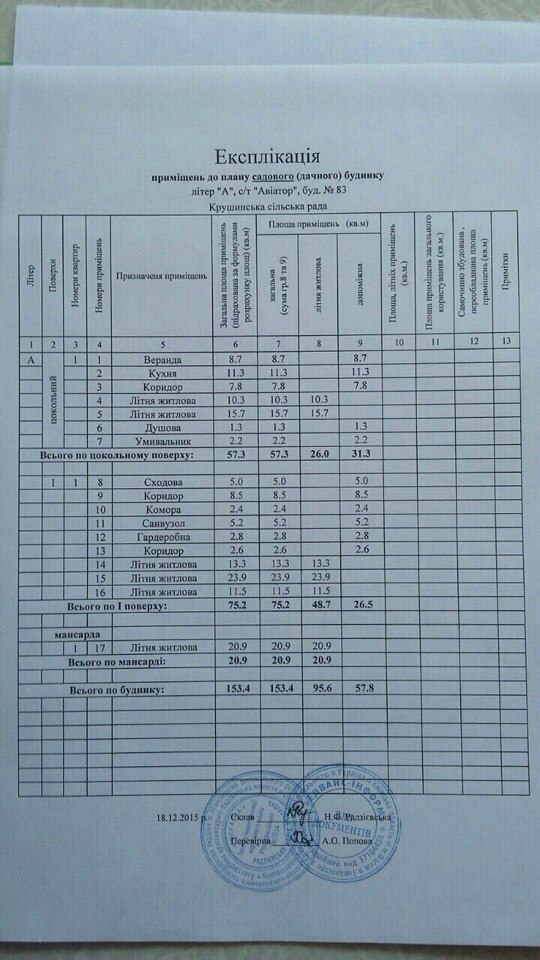 Експлікація
приміщень до плану садового (дачного) будинку
літер "А", с/т "Авіатор", буд. № 83
Крушинська сільська рада
Літер Поверхи Номери квартир Номери приміщень Призначеня приміщень Загальна площа приміщень (підрахована за формулами розрахунку площ) (кв.м) Площа приміщень (кв.м) загальна (сума гр.8 та 9) літня житлова допоміжна Площа, літніх приміщень (кв.м.) Площа приміщень загального користування (кв.м.) Самочинно збудована, переобладнана площа приміщень (кв.м) Примітки
1 2 3 4 5 6 7 8 9 10 11 12 13
А цокольний 1 1 Веранда 8.7 8.7 8.7
2 Кухня 11.3 11.3 11.3
3 Коридор 7.8 7.8 7.8
4 Літня житлова 10.3 10.3 10.3
5 Літня житлова 15.7 15.7 15.7
6 Душова 1.3 1.3 1.3
7 Умивальник 2.2 2.2 2.2
Всього по цокольному поверху: 57.3 57.3 26.0 31.3
1 1 8 Сходова 5.0 5.0 5.0
9 Коридор 8.5 8.5 8.5
10 Комора 2.4 2.4 2.4
11 Санвузол 5.2 5.2 5.2
12 Гардеробна 2.8 2.8 2.8
13 Коридор 2.6 2.6 2.6
14 Літня житлова 13.3 13.3 13.3
15 Літня житлова 23.9 23.9 23.9
16 Літня житлова 11.5 11.5 11.5
Всього по I поверху: 75.2 75.2 48.7 26.5
мансарда
1 17 Літня житлова 20.9 20.9 20.9
Всього по мансарді: 20.9 20.9 20.9
Всього по будинку: 153.4 153.4 95.6 57.8
18.12.2015 р. Склав Н.Ф. Радзієвська
ДОКУМЕНТІВ
Перевірив А.О. Попова